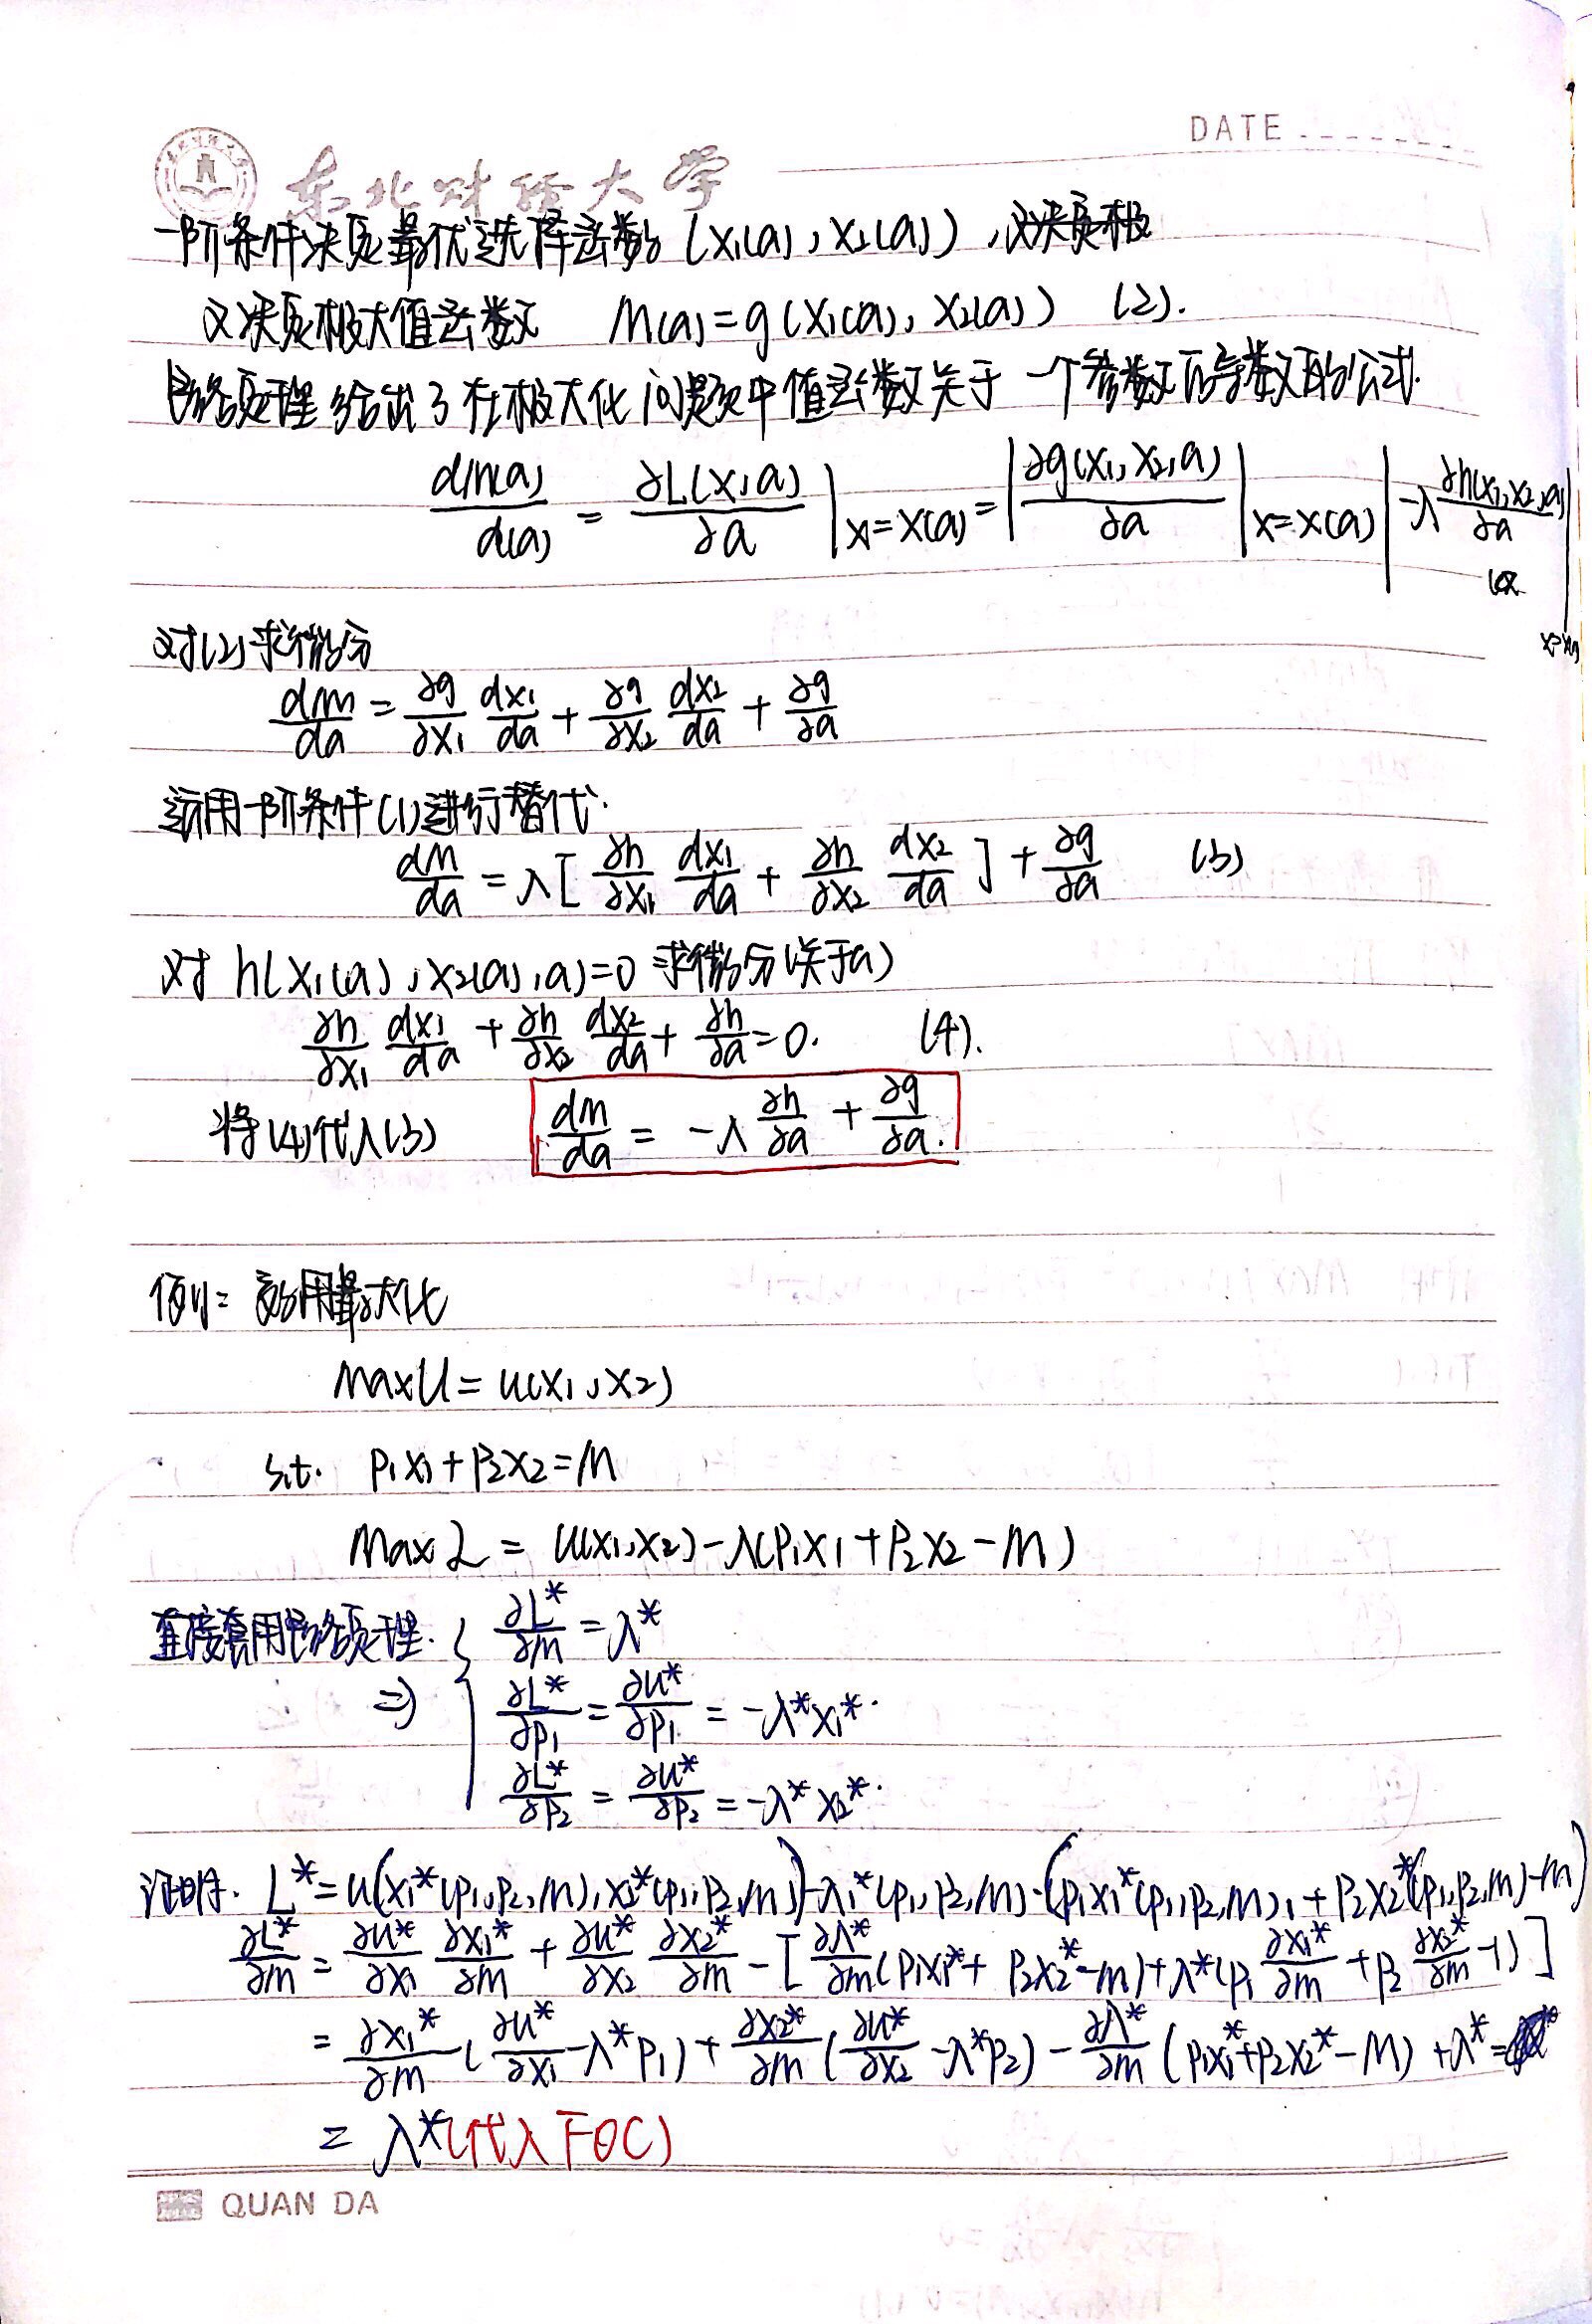 DATE
东北财经大学
一阶条件决定最优选择函数 (x₁(a), x₂(a)), 又决定极
又决定极大值函数 M(a) = g(x₁(a), x₂(a)) (2).
包络定理给出了在极大化问题中值函数关于一个参数的导数的公式.
dM(a)/d(a) = ∂L(x,a)/∂a |x=x(a) = |∂g(x₁,x₂,a)/∂a |x=x(a) | -λ ∂h(x₁,x₂,a)/∂a | x=x(a)
对(2)求微分
dM/da = ∂g/∂x₁ dx₁/da + ∂g/∂x₂ dx₂/da + ∂g/∂a
运用一阶条件(1)进行替代.
dM/da = λ[ ∂h/∂x₁ dx₁/da + ∂h/∂x₂ dx₂/da ] + ∂g/∂a (3)
对 h(x₁(a), x₂(a), a)=0 求微分(关于a)
∂h/∂x₁ dx₁/da + ∂h/∂x₂ dx₂/da + ∂h/∂a = 0. (4).
将(4)代入(3) dM/da = -λ ∂h/∂a + ∂g/∂a.
例1: 效用最大化
Max U = u(x₁, x₂)
s.t. p₁x₁ + p₂x₂ = m
Max L = u(x₁,x₂) - λ(p₁x₁ + p₂x₂ - m)
直接套用包络定理. { ∂L*/∂m = λ*
⇒ ∂L*/∂p₁ = ∂u*/∂p₁ = -λ*x₁*.
∂L*/∂p₂ = ∂u*/∂p₂ = -λ*x₂*.
证明. L* = u(x₁*(p₁,p₂,m), x₂*(p₁,p₂,m)) - λ₁*(p₁,p₂,m)·(p₁x₁*(p₁,p₂,m), + p₂x₂*(p₁,p₂,m) - m)
∂L*/∂m = ∂u*/∂x₁ ∂x₁*/∂m + ∂u*/∂x₂ ∂x₂*/∂m - [ ∂λ*/∂m (p₁x₁* + p₂x₂* - m) + λ*(p₁ ∂x₁*/∂m + p₂ ∂x₂*/∂m - 1) ]
= ∂x₁*/∂m ( ∂u*/∂x₁ - λ*p₁) + ∂x₂*/∂m ( ∂u*/∂x₂ - λ*p₂) - ∂λ*/∂m (p₁x₁* + p₂x₂* - m) + λ* =
= λ* (代入FOC)
QUAN DA